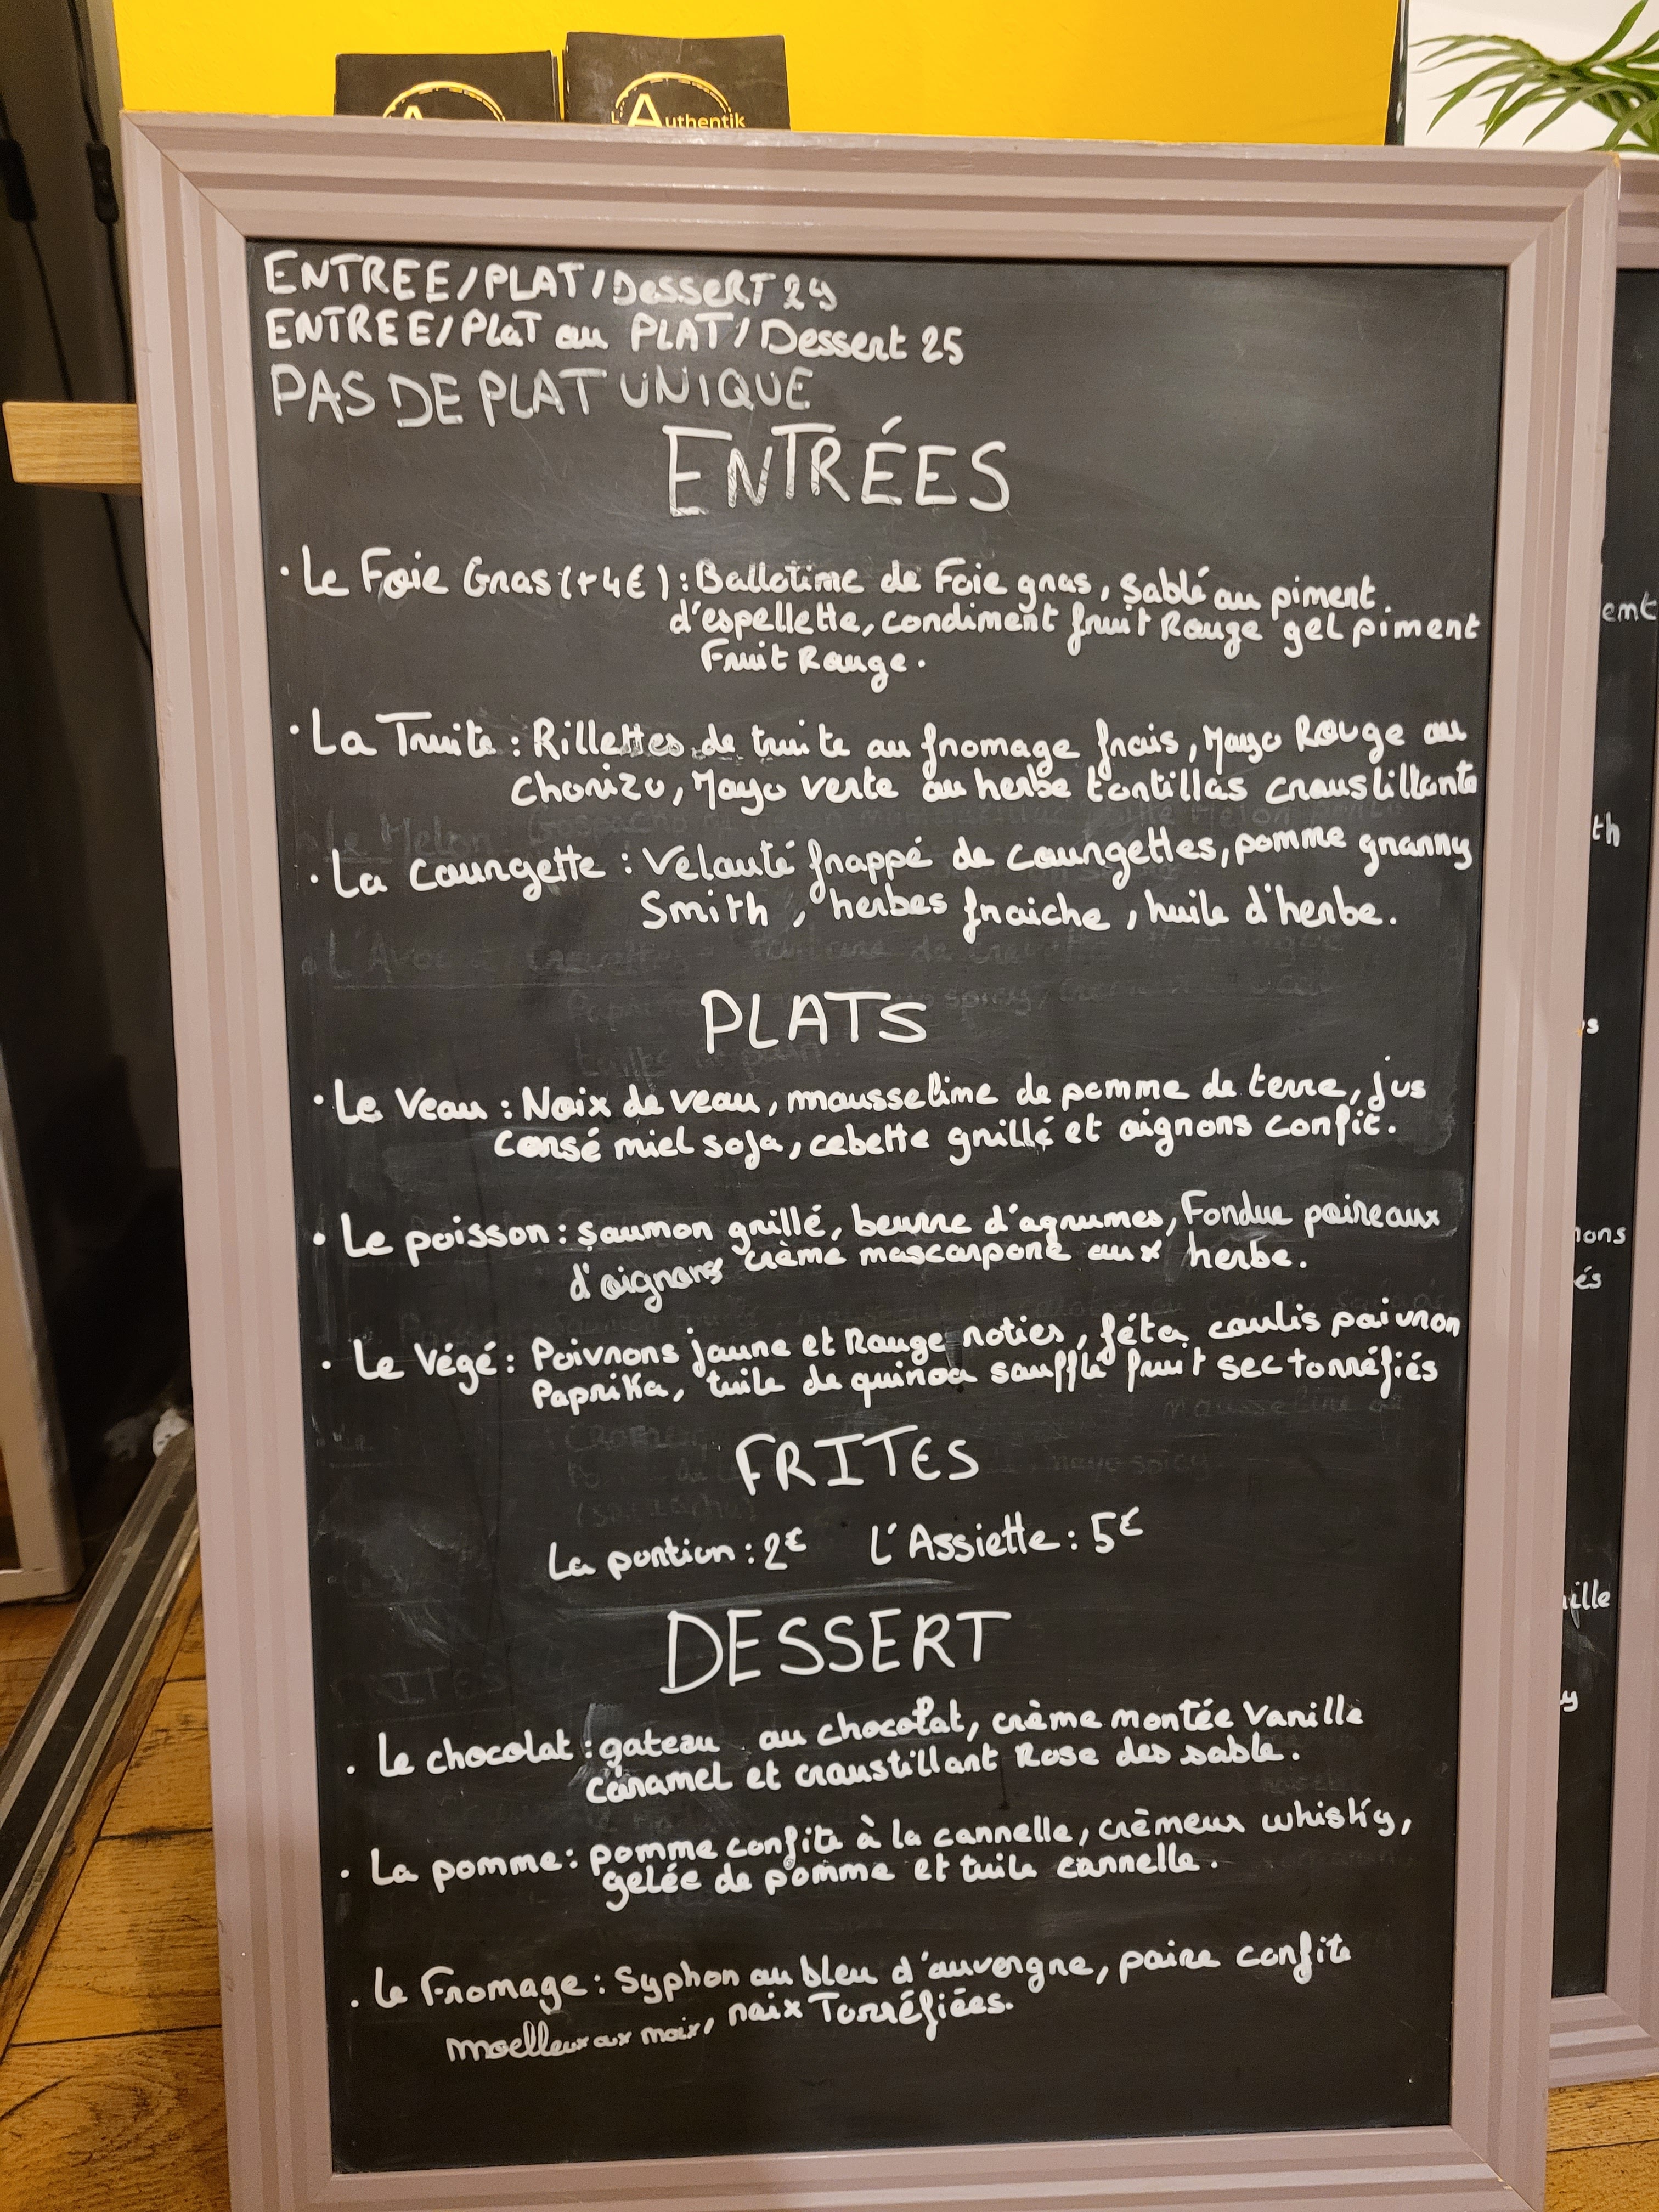 L'Authentik
ENTREE/PLAT/DesseRT 29
ENTREE/PlaT ou PLAT/Dessert 25
PAS DE PLAT UNIQUE
ENTRÉES
· Le Foie Gras (+4€) : Ballotine de Foie gras, Sablé au piment
d'espellette, condiment fruit Rouge gel piment
Fruit Rouge.
· La Truite : Rillettes de truite au fromage frais, Mayo Rouge au
chorizo, Mayo verte au herbe tortillas croustillante
· La courgette : Velouté frappé de courgettes, pomme granny
Smith, herbes fraiche, huile d'herbe.
PLATS
· Le Veau : Noix de veau, mousseline de pomme de terre, jus
corsé miel soja, cebette grillé et oignons confit.
· Le poisson : saumon grillé, beurre d'agrumes, Fondue poireaux
d'oignons crème mascarpone aux herbe.
· Le Végé : Poivrons jaune et Rouge roties, féta coulis poivron
Paprika, tuile de quinoa soufflé fruit sec torréfiés
FRITES
La portion : 2€ L'Assiette : 5€
DESSERT
· Le chocolat : gateau au chocolat, crème montée Vanille
Caramel et croustillant Rose des sable.
· La pomme : pomme confite à la cannelle, crèmeux whisky,
gelée de pomme et tuile cannelle.
· Le Fromage : Syphon au bleu d'auvergne, poire confite
moelleux aux noix, noix Torréfiées.